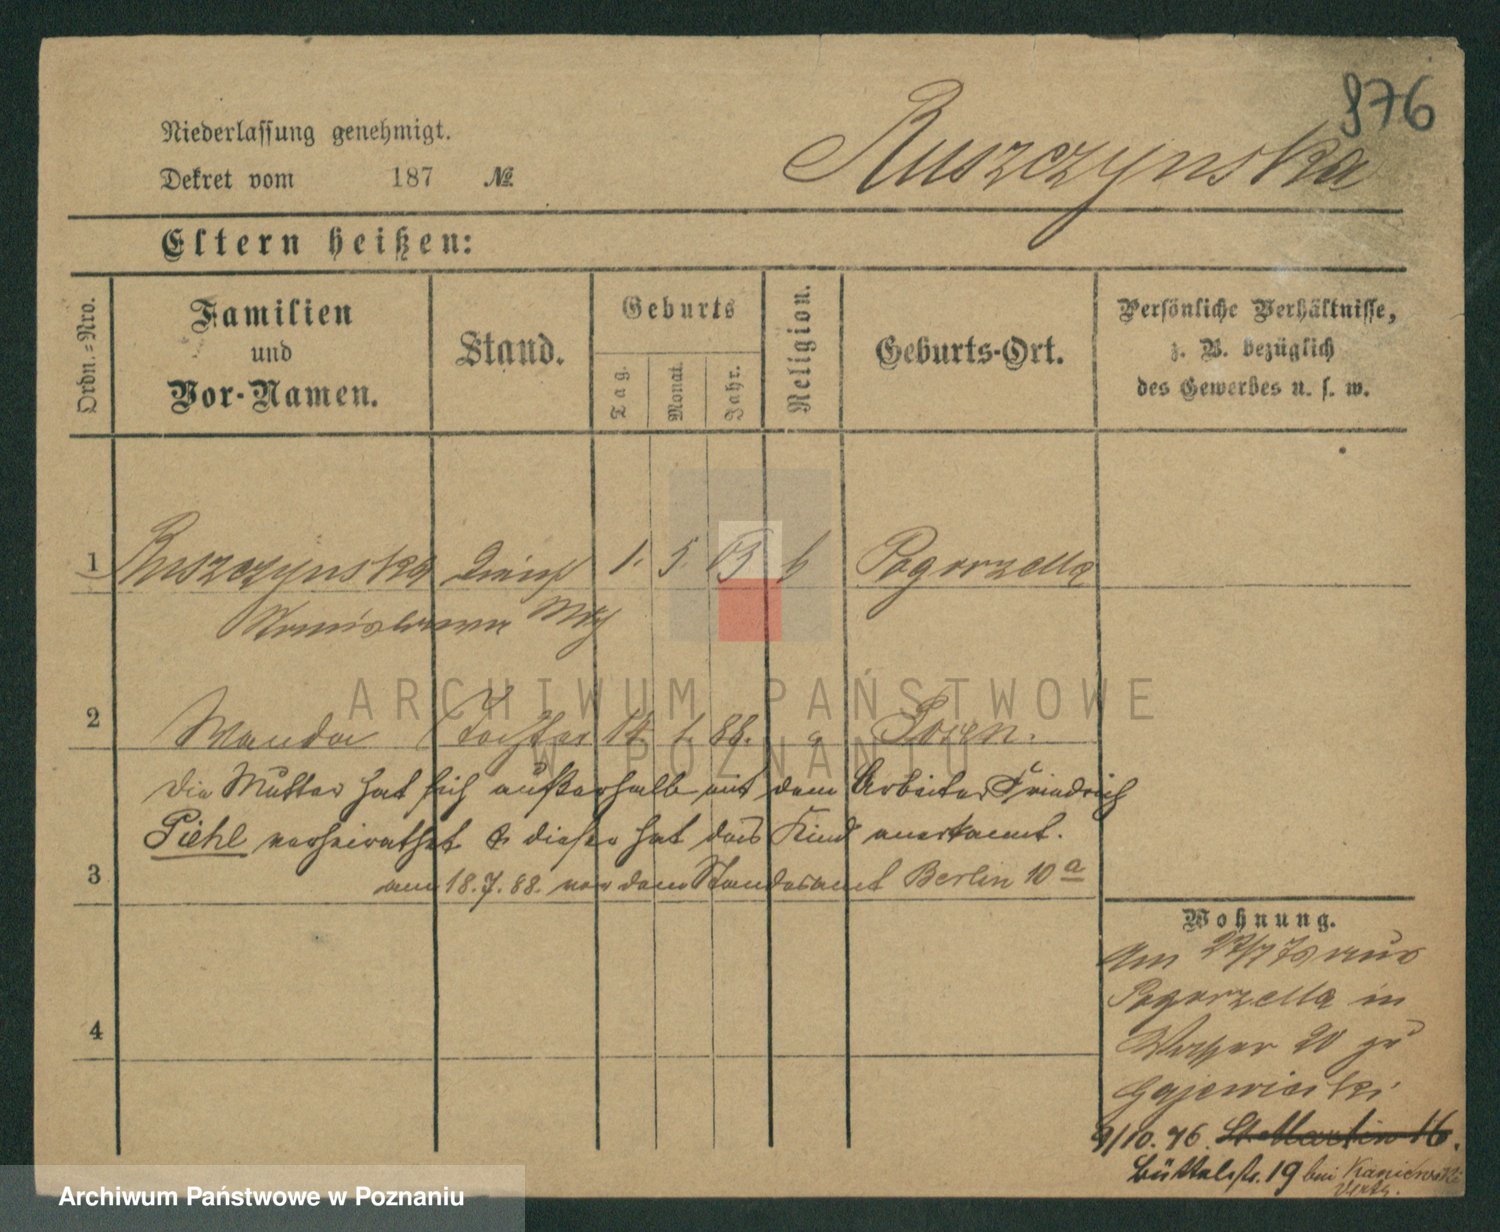 976
Ruszczynska
Niederlassung genehmigt.
Dekret vom 187 №
Eltern heißen:
Ordn.-Nro.
Familien
und
Vor-Namen.
Stand.
Geburts
Tag.
Monat.
Jahr.
Religion.
Geburts-Ort.
Persönliche Verhältnisse,
z. B. bezüglich
des Gewerbes u. s. w.
1 Ruszczynska 1. 5. k Pogorzella
Stanislawa
2 Wanda Tochter 14. 1. 88. Posen.
Die Mutter hat sich außerhalb mit dem Arbeiter Friedrich
Piehl verheirathet & dieser hat das Kind anerkannt.
3 am 18.7.88. vor dem Standesamt Berlin 10a
4
Wohnung.
Am aus
Pogorzella in
Wasser 20 zu
Gajewiecki
9/10. 76. St Martin 16.
Büttelstr. 19 bei Kaniewski
ARCHIWUM PAŃSTWOWE
W POZNANIU
Archiwum Państwowe w Poznaniu